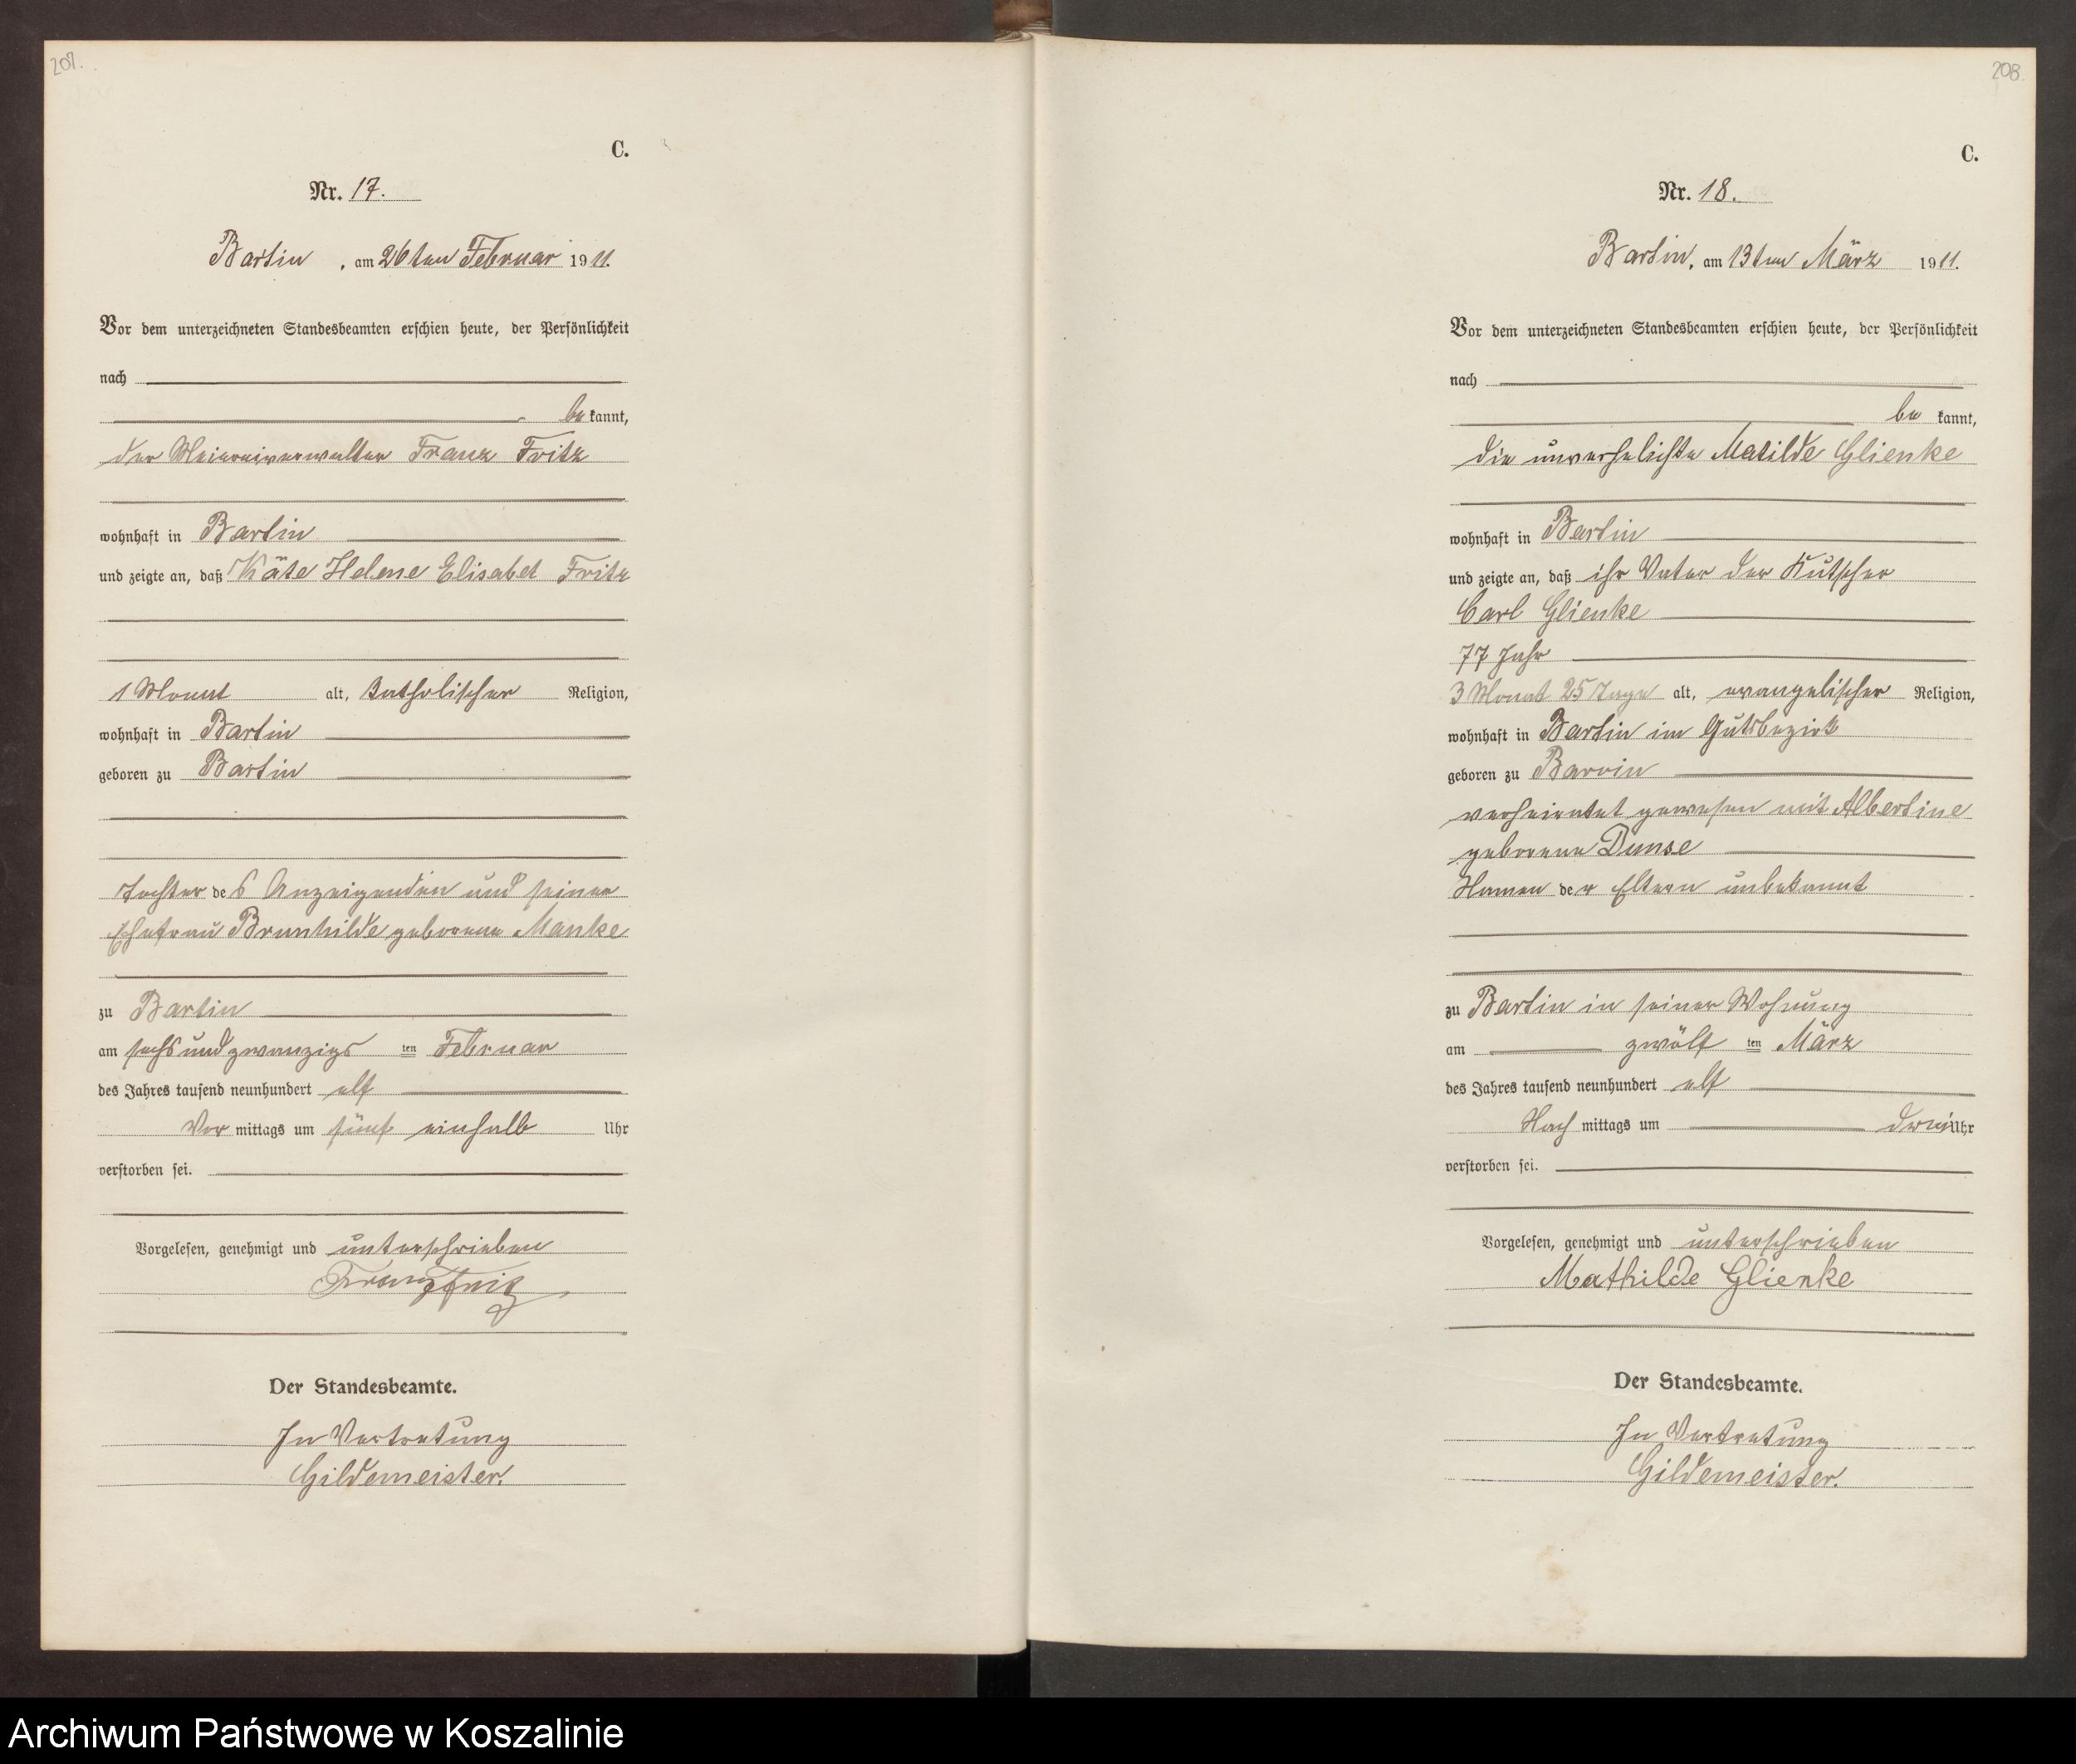 207.
C.
Nr. 17.
Bartin, am 26ten Februar 1911.
Vor dem unterzeichneten Standesbeamten erschien heute, der Persönlichkeit
nach
bekannt,
der Meiereiverwalter Franz Fritz
wohnhaft in Bartin
und zeigte an, daß Käte Helene Elisabet Fritz
1 Monat alt, katholischer Religion,
wohnhaft in Bartin
geboren zu Bartin
Tochter des Anzeigenden und seiner
Ehefrau Brunhilde geborene Manke
zu Bartin
am sechsundzwanzigs ten Februar
des Jahres tausend neunhundert elf
Vor mittags um fünf einhalb Uhr
verstorben sei.
Vorgelesen, genehmigt und unterschrieben
Franz Fritz
Der Standesbeamte.
In Vertretung
Gildemeister.
208.
C.
Nr. 18.
Bartin, am 13ten März 1911.
Vor dem unterzeichneten Standesbeamten erschien heute, der Persönlichkeit
nach
be kannt,
die unverehelichte Matilde Glienke
wohnhaft in Bartin
und zeigte an, daß ihr Vater der Kutscher
Carl Glienke
77 Jahr
3 Monat 25 Tage alt, evangelischer Religion,
wohnhaft in Bartin im Gutsbezirk
geboren zu Barvin
verheiratet gewesen mit Albertine
geborene Dunse
Namen der Eltern unbekannt
zu Bartin in seiner Wohnung
am zwölf ten März
des Jahres tausend neunhundert elf
Nach mittags um drei Uhr
verstorben sei.
Vorgelesen, genehmigt und unterschrieben
Mathilde Glienke
Der Standesbeamte.
In Vertretung
Gildemeister.
Archiwum Państwowe w Koszalinie